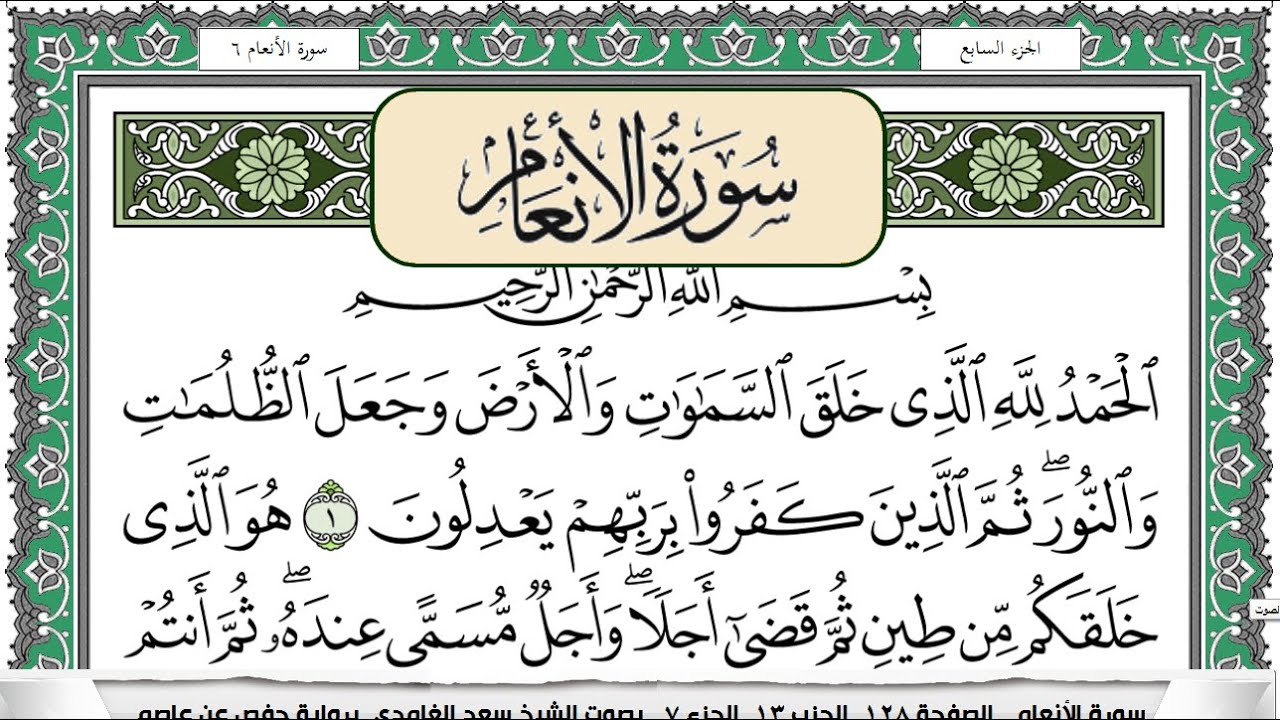 الجزء السابع
سورة الأنعام ٦
سُورَةُ الأَنْعَامِ
بِسْمِ ٱللَّهِ ٱلرَّحْمَٰنِ ٱلرَّحِيمِ
ٱلْحَمْدُ لِلَّهِ ٱلَّذِى خَلَقَ ٱلسَّمَٰوَٰتِ وَٱلْأَرْضَ وَجَعَلَ ٱلظُّلُمَٰتِ
وَٱلنُّورَ ۖ ثُمَّ ٱلَّذِينَ كَفَرُوا۟ بِرَبِّهِمْ يَعْدِلُونَ ١ هُوَ ٱلَّذِى
خَلَقَكُم مِّن طِينٍ ثُمَّ قَضَىٰٓ أَجَلًا ۖ وَأَجَلٌ مُّسَمًّى عِندَهُۥ ۖ ثُمَّ أَنتُمْ
الصوت
سورة الأنعام الصفحة ١٢٨ الحزب ١٣ الجزء ٧ بصوت الشيخ سعد الغامدي برواية حفص عن عاصم